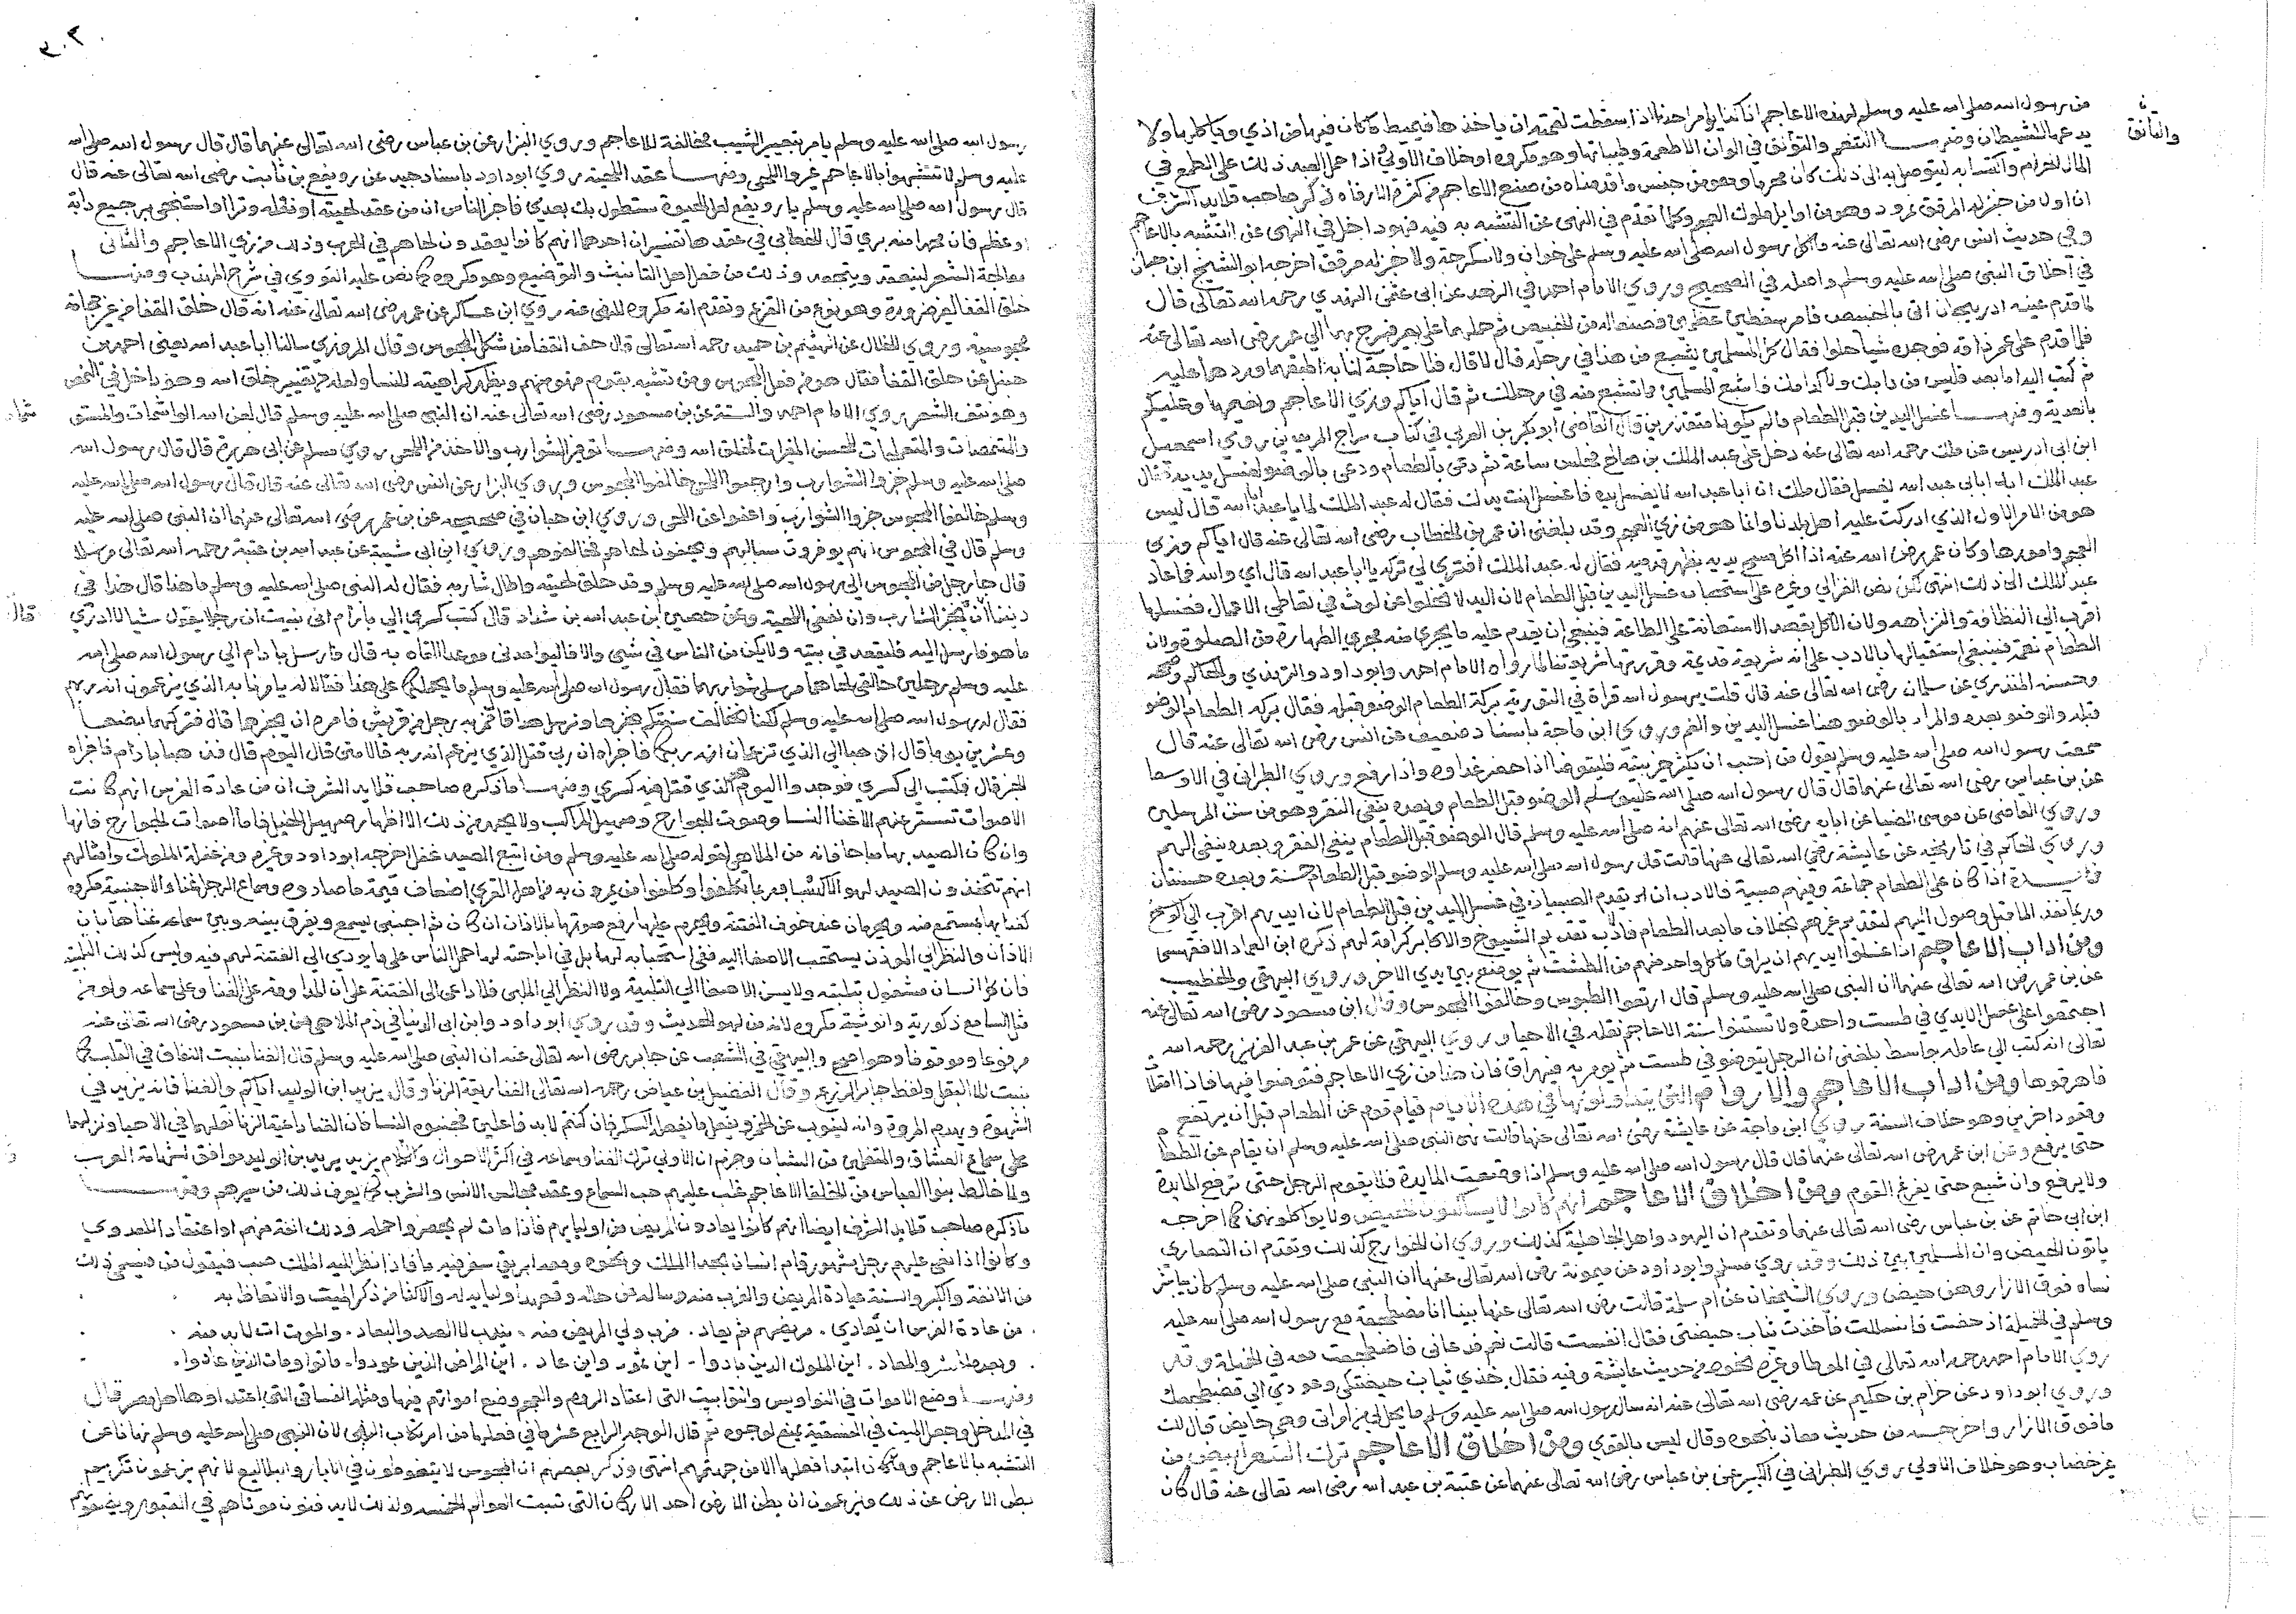 من رسول الله صلى الله عليه وسلم لهذه الاعاجم انا كنا يؤمر احدنا اذا سقطت لقمته ان ياخذها فيميط ما كان فيها من اذي وياكلها ولا
يدعها للشيطان ومنها التنعم والتأنق في الوان الاطعمة وطيباتها وهو مكروه او خلاف الاولى اذا حمل العبد ذلك على الطمع في
والتانق
المال الحرام واكتسابه ليتوصل به الى ذلك كان محرما وهو من جنس ما قدمناه من صنع الاعاجم من كثرة الارفاه ذكر صاحب قلايد الشرف
ان اول من خبز له المرقق نمرود وهو من اوايل ملوك العجم وكلما تقدم في النهى عن التشبه به فيه فهو داخل في النهى عن التشبه بالاعاجم
وفي حديث انس رضى الله تعالى عنه ما اكل رسول الله صلى الله عليه وسلم على خوان ولا سكرجة ولا خبز له مرقق اخرجه ابو الشيخ ابن حبان
في اخلاق النبى صلى الله عليه وسلم واصله في الصحيح وروي الامام احمد في الزهد عن ابى عثمن النهدي رحمه الله تعالى قال
لما قدم عتبه اذربيجان اتى بالخبيص فامر بسفطين عظيمين فصنعا له من الخبيص ثم حملهما على بعير فسرح بهما الى عمر رضى الله تعالى عنه
فلما قدم على عمر ذاقه فوجده شيا حلوا فقال كل المسلمين يشبع من هذا في رحله قال لا قال فلا حاجة لنا به اطبقهما وردهما عليه
ثم كتب اليه اما بعد فليس من كد ابيك ولا كد امك فاشبع المسلمين مما تشبع منه في رحلك ثم قال اياكم وزي الاعاجم ونعيمها وعليكم
بالمعدية ومنها غسل اليدين قبل الطعام وان لم يكونا متقذرين قال القاضى ابو بكر بن العربي في كتاب سراج المريدين روي اسمعيل
ابن ابى ادريس عن ملك رحمه الله تعالى عنه دخل على عبد الملك بن صالح فجلس ساعة ثم دعى بالطعام ودعى بالوضو لغسل يديه فقال
عبد الملك ابدا بابى عبد الله يغسل فقال ملك ان ابا عبد الله لا يغسل يده فاغسل انت يدك فقال له عبد الملك لم يا ابا عبد الله قال ليس
هو من الامر الاول الذي ادركت عليه اهل بلدنا وانما هو من زي العجم وقد بلغنى ان عمر بن الخطاب رضى الله تعالى عنه قال اياكم وزي
العجم وامورها وكان عمر رضى الله عنه اذا اكل مسح يديه بظهر قدميه فقال له عبد الملك افترى لي تركه يا ابا عبد الله قال اي والله فما عاد
عبد الملك الى ذلك انتهى لكن نص الغزالي وغيره على استحباب غسل اليدين قبل الطعام لان اليد لا تخلوا عن لوث في تعاطى الاعمال فغسلها
اقرب الى النظافة والنزاهة ولان الاكل بقصد الاستعانة على الطاعة فينبغى ان يقدم عليه ما يجرى منه مجرى الطهارة من الصلوة ولان
الطعام نعمة فينبغى استقبالها بالادب على انه شريعة قديمة وقررتها شريعتنا لما رواه الامام احمد وابو داود والترمذي والحاكم وصححه
وحسنه المنذري عن سلمان رضى الله تعالى عنه قال قلت يرسول الله قرأت في التورية بركة الطعام الوضو قبله فقال بركة الطعام الوضو
قبله والوضو بعده والمراد بالوضو هنا غسل اليدين والفم وروي ابن ماجة باسناد ضعيف عن انس رضى الله تعالى عنه قال
سمعت رسول الله صلى الله عليه وسلم يقول من احب ان يكثر خير بيته فليتوضا اذا حضر غداوه واذا رفع وروي الطبرانى في الاوسط
عن بن عباس رضى الله تعالى عنهما قال قال رسول الله صلى الله عليه وسلم الوضو قبل الطعام وبعده ينفى الفقر وهو من سنن المرسلين
وروي القاضى عن موسى الرضا عن ابايه رضى الله تعالى عنهم انه صلى الله عليه وسلم قال الوضو قبل الطعام ينفى الفقر وبعده ينفى الهم
وروي الحاكم في تاريخه عن عايشة رضى الله تعالى عنها قالت قال رسول الله صلى الله عليه وسلم الوضو قبل الطعام حسنة وبعده حسنتان
فايدة اذا كان على الطعام جماعة وفيهم صبية فالادب ان لا يقدم الصبيان في غسل اليدين قبل الطعام لان ايديهم اقرب الى الوسخ
وربما نفد الما قبل وصول اليهم لتقديم غيرهم بخلاف ما بعد الطعام فالادب تقديم الشيوخ والاكابر كرامة لهم ذكره ابن العماد الاقفهسى
ومن اداب الاعاجم اذا غسلوا ايديهم ان يراق ما كل واحد منهم من الطشت ثم يوضع بين يدي الاخر وروي البيهقى والخطيب
عن بن عمر رضى الله تعالى عنهما ان النبى صلى الله عليه وسلم قال اترعوا الطسوس وخالفوا المجوس وقال ابن مسعود رضى الله تعالى عنه
اجتمعوا على غسل الايدي في طست واحدة ولا تستنوا سنة الاعاجم نقله في الاحيا وروي البيهقى عن عمر بن عبد العزيز رحمه الله
تعالى انه كتب الى عامله بواسط بلغنى ان الرجل يتوضو في طست ثم يومر به فيهراق فان هذا من زي الاعاجم فتوضوا فيها فاذا امتلات
فاهرقوها ومن اداب الاعاجم والاروام التى يتعاطونها في هذه الايام قيام قوم عن الطعام قبل ان يرتفع
وقعود اخرين وهو خلاف السنة روي ابن ماجة عن عايشة رضى الله تعالى عنها قالت نهى النبى صلى الله عليه وسلم ان يقام عن الطعام
حتى يرفع وعن ابن عمر رضى الله تعالى عنهما قال قال رسول الله صلى الله عليه وسلم اذا وضعت المايدة فلا يقوم الرجل حتى ترفع المايدة
ولا يرفع وان شبع حتى يفرغ القوم ومن اخلاق الاعاجم انهم كانوا لا يساكنون الحيض ولا يواكلونهن كما اخرجه
ابن ابى حاتم عن بن عباس رضى الله تعالى عنهما وتقدم ان اليهود واهل الجاهلية كذلك وروي ان الخوارج كذلك وتقدم ان النصارى
ياتون الحيض وان المسلمين بين ذلك وقد روي مسلم وابو داود عن ميمونة رضى الله تعالى عنها ان النبى صلى الله عليه وسلم كان يباشر
نساه فوق الازار وهن حيض وروي الشيخان عن ام سلمة قالت رضى الله تعالى عنها بينا انا مضطجعة مع رسول الله صلى الله عليه
وسلم في الخميلة اذ حضت فانسللت فاخذت ثياب حيضتى فقال انفست قالت نعم فدعانى فاضطجعت معه في الخميلة وقد
روي الامام احمد رحمه الله تعالى في الموطا وغيره نحوه من حديث عايشة وفيه فقال خذي ثياب حيضتكي وعودي الى مضجعك
وروي ابو داود عن حزام بن حكيم عن عمه رضى الله تعالى عنه انه سال رسول الله صلى الله عليه وسلم ما يحل لي من امراتى وهى حايض قال لك
ما فوق الازار واخرجه من حديث معاذ بنحوه وقال ليس بالقوي ومن اخلاق الاعاجم ترك الشعر ابيض من
غير خضاب وهو خلاف الاولى روي الطبرانى في الكبير عن بن عباس رضى الله تعالى عنهما عن عتبة بن عبد الله رضى الله تعالى عنه قال كان
رسول الله صلى الله عليه وسلم يامر بتغيير الشيب مخالفة للاعاجم وروي البزار عن بن عباس رضى الله تعالى عنهما قال قال رسول الله صلى الله
عليه وسلم لا تتشبهوا بالاعاجم غيروا اللحى ومنها عقد اللحية روي ابو داود باسناد جيد عن رويفع بن ثابت رضى الله تعالى عنه قال
قال رسول الله صلى الله عليه وسلم يا رويفع لعل الحيوة ستطول بك بعدي فاخبر الناس ان من عقد لحيته او تقلد وترا او استنجى برجيع دابة
او عظم فان محمدا منه بري قال الخطابي في عقدها تفسيران احدهما انهم كانوا يعقدون لحاهم في الحرب وذلك من زي الاعاجم والثانى
معالجة الشعر لينعقد ويتجعد وذلك من فعل اهل التانيث والتوضيع وهو مكروه كما نص عليه النووي في شرح المهذب ومنها
حلق القفا لغير ضرورة وهو نوع من القزع وتقدم انه مكروه للنهى عنه روي ابن عساكر عن عمر رضى الله تعالى عنه انه قال حلق القفا من غير حجامة
مجوسية وروي الخلال عن الهيثم بن حميد رحمه الله تعالى قال حف القفا من شكل المجوس وقال المروزي سالنا ابا عبد الله يعنى احمد بن
حنبل عن حلق القفا فقال هو من فعل المجوس ومن تشبه بقوم فهو منهم ويظهر كراهيته للنسا ولعله من تغيير خلق الله وهو داخل في النمص
وهو نتف الشعر روي الامام احمد والستة عن بن مسعود رضى الله تعالى عنه ان النبى صلى الله عليه وسلم قال لعن الله الواشمات والمستو
شمات
والمتنمصات والمتفلجات للحسن المغيرات لخلق الله ومنها توفير الشوارب والاخذ من اللحى روي مسلم عن ابى هريرة قال قال رسول الله
صلى الله عليه وسلم جزوا الشوارب وارجعوا اللحى خالفوا المجوس وروي البزار عن انس رضى الله تعالى عنه قال قال رسول الله صلى الله عليه
وسلم خالفوا المجوس جزوا الشوارب واعفوا عن اللحى وروي ابن حبان في صحيحه عن بن عمر رضى الله تعالى عنهما ان النبى صلى الله عليه
وسلم قال في المجوس انهم يوفرون سبالهم ويحفون لحاهم فخالفوهم وروي ابن ابى شيبة عن عبد الله بن عتبة رحمه الله تعالى مرسلا
قال جا رجل من المجوس الى رسول الله صلى الله عليه وسلم وقد حلق لحيته واطال شاربه فقال له النبى صلى الله عليه وسلم ما هذا قال هذا في
ديننا قال
لكن في ديننا ان نحفى الشارب وان نعفى اللحية وعن حصين ابن عبد الله بن شداد قال كتب كسرى الى باذام انى نبيت ان رجلا يقول شيا لا ادري
ما هو فارسل اليه فليقعد في بيته ولا يكن من الناس في شيى والا فليواعدنى موعدا القاه به قال فارسل باذام الى رسول الله صلى الله
عليه وسلم رجلين حالقى لحاهما مرسلى شواربهما فقال رسول الله صلى الله عليه وسلم ما يحملكما على هذا فقالا له يامرنا به الذي يزعمون انه ربهم
فقال له رسول الله صلى الله عليه وسلم لكنا نخالف سنتكم نجز هذا ونرسل هذا فمر به رجل من قريش فامره ان يجزهما قال فتركهما بضعا
وعشرين يوما قال اذهبا الى الذي تزعمان انه ربكما فاخبراه ان ربي قتل الذي يزعم انه ربه قالا متى قال اليوم قال فذهبا الى باذام فاخبراه
الخبر قال فكتب الى كسرى فوجدوا اليوم هو الذي قتل فيه كسرى ومنها ما ذكره صاحب قلايد الشرف ان من عادة الفرس انهم كانت
الاصوات تستر عنهم الا غنا النسا وصوت الجوارح وصهيل المراكب ولا يحمد من ذلك الا اظهار صهيل الخيل فاما اصوات الجوارح فانها
وان كان الصيد بها مباحا فانه من الملاهى لقوله صلى الله عليه وسلم ومن اتبع الصيد غفل اخرجه ابو داود وغيره ومن غفلة الملوك وامثالهم
انهم يتخذون الصيد لهوا لا اكتسابا فربما تكلفوا وكلفوا من يمرون به من اهل القرى اضعاف قيمة ما صادوه وسماع الرجل غنا الاجنبية مكروه
كغنايها لمستمع منه ويحرمان عند خوف الفتنة ويحرم عليها رفع صوتها بالاذان ان كان ثم اجنبى يسمع ويفرق بينه وبين سماعه غناها بان
الاذان والنظر الى الموذن يستحب الاصغا اليه ففى استحبابه لها بل في اباحته لها حمل الناس على ما يودي الى الفتنة لهم فيه وليس كذلك التلبية
فان كل انسان مشغول بتلبيته ولا يسن الاصغا الى التلبية ولا النظر الى الملبى فلا داعى الى الفتنة على ان المداومة على الغنا وعلى سماعه ولو من
مرفوعا وموقوفا وهو اصح والبيهقى في الشعب عن جابر رضى الله تعالى عنه ان النبى صلى الله عليه وسلم قال الغنا ينبت النفاق في القلب كما
ينبت الما البقل ولفظ جابر الزرع وقال الفضيل بن عياض رحمه الله تعالى الغنا رقية الزنا وقال يزيد ابن الوليد اياكم والغنا فانه يزيد في
الشهوة ويهدم المروة وانه لينوب عن الخمر ويفعل ما يفعل السكر فان كنتم لا بد فاعلين فجنبوه النسا فان الغنا داعية الزنا نقلهما في الاحيا ونزلهما
على سماع العشاق والمغتلمين من الشبان وجزم ان الاولى ترك الغنا وسماعه في اكثر الاحوال وكلام يزيد بن الوليد موافق لشهامة العرب
ولما خالط بنوا العباس من الخلفا الاعاجم غلب عليهم حب السماع وعقد مجالس الانس والشرب كما يعرف ذلك من سيرهم ومنها
ما ذكره صاحب قلايد الشرف ايضا انهم كانوا يعادون المريض من اوليايهم فاذا مات لم يحضروا حمله وذلك انفة منهم او اعتقاد العدوى
وكانوا اذا نعى عليهم رجل مشهور قام انسان بحذا الملك
من الانفة والكبر والسنة عيادة المريض والقرب منه وساله عن حاله وقصد اوليايه له والاكثار من ذكر الميت والاتعاظ به
من عادة الفرس ان تعادي . مريضهم ثم يعاد . قرب ولي المريض منه . يندب لا الصد والبعاد . والموت ات لا بد منه
وبعده النشر والمعاد . اين الملوك الذين بادوا . اين ثمود واين عاد . اين المراض الذين عودوا . ماتوا ومات الذين عادوا .
ومنها وضع الاموات في النواويس والتوابيت التى اعتاد الروم والعجم وضع امواتهم فيها ومثله الفساقى التى اعتادوها اهل مصر قال
في المدخل وجعل الميت في الفسقية يمنع لوجوه ثم قال الوجه الرابع عشر ما في فعلها من ارتكاب النهى لان النبى صلى الله عليه وسلم نهانا عن
التشبه بالاعاجم وما كان ابتدا فعلها الا من جهتهم انتهى وذكر بعضهم ان المجوس لا يتغوطون في الابار والبلاليع لانهم يزعمون تكريم
بطن الارض عن ذلك ويزعمون ان بطن الارض احد الاركان التى بنيت العوالم الخمسه ولذلك لا يدفنون موتاهم في القبور